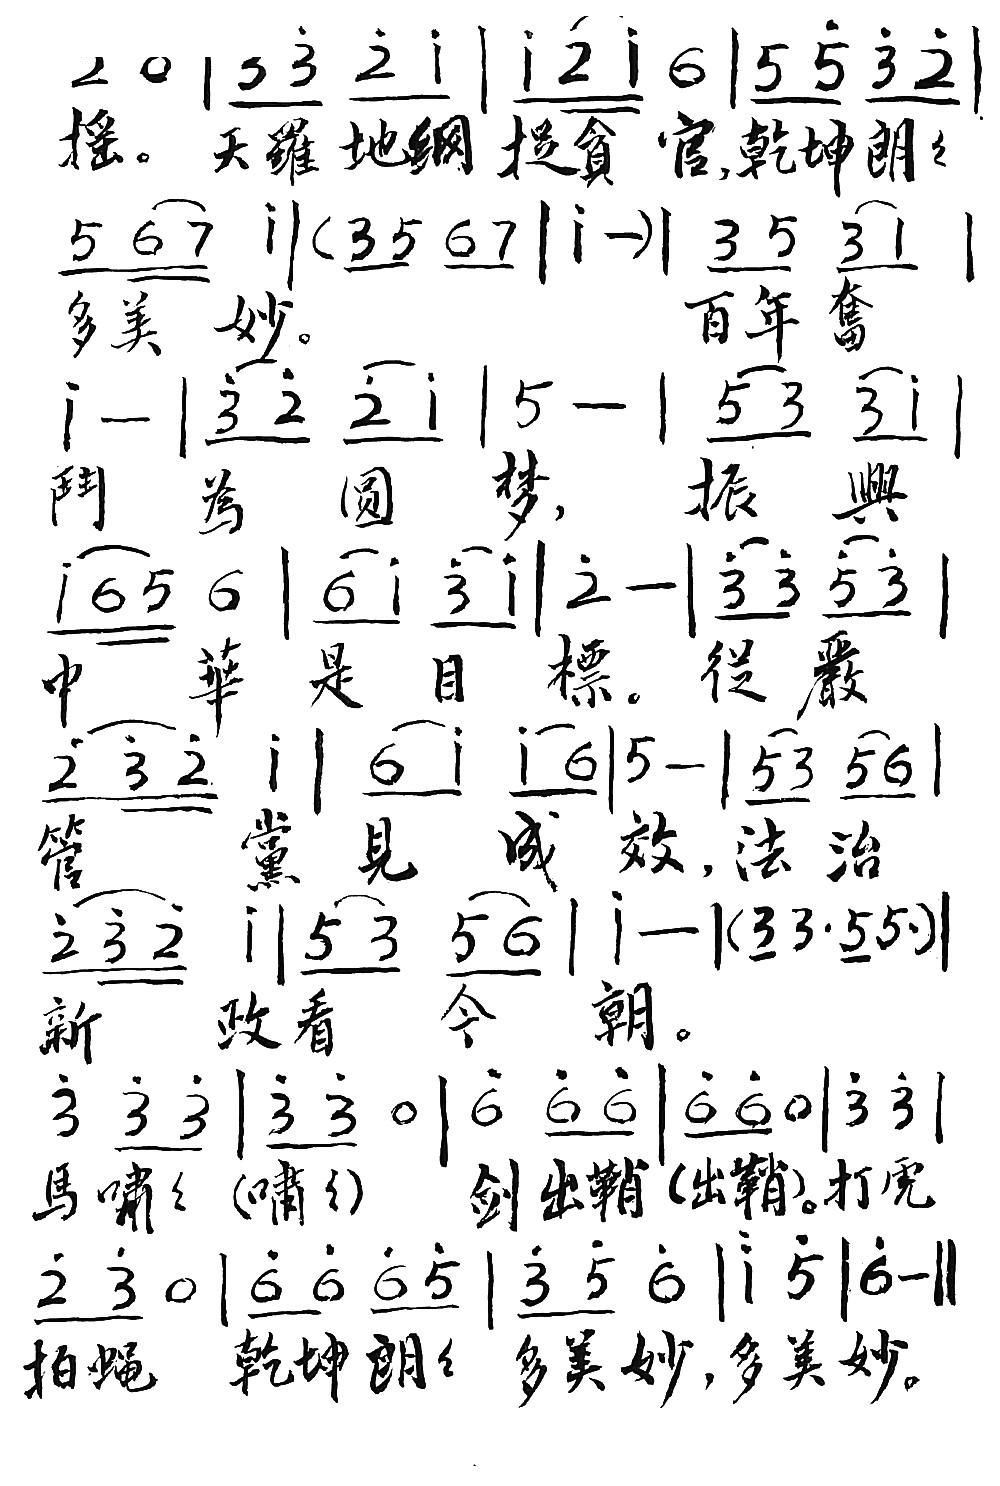 2 0 | 5 3̇ 2̇ i | i 2̇ i 6 | 5 5̇ 3̇ 2̇ |
搖。天羅地網捉貪官,乾坤朗〻
5 6 7 i | (3 5 6 7 | i —) | 3 5 3 1 |
多美妙。百年奮
i — | 3̇ 2̇ 2̇ i | 5 — | 5 3 3 i |
鬥為圆梦,振興
i 6 5 6 | 6 i 3̇ i | 2̇ — | 3̇ 3̇ 5̇ 3̇ |
中華是目標。從嚴
2̇ 3̇ 2̇ i | 6 i i 6 | 5 — | 5 3 5 6 |
管黨見成效,法治
2̇ 3̇ 2̇ i | 5 3 5 6 | i — | (3 3· 5 5·) |
新政看今朝。
3̇ 3̇ 3̇ | 3̇ 3̇ 0 | 6̇ 6̇ 6̇ | 6̇ 6̇ 0 | 3̇ 3̇ |
馬嘯〻(嘯〻)剑出鞘(出鞘)。打虎
2̇ 3̇ 0 | 6̇ 6̇ 6̇ 5̇ | 3̇ 5̇ 6̇ | i 5̇ | 6̇ — ||
拍蝇 乾坤朗〻多美妙,多美妙。